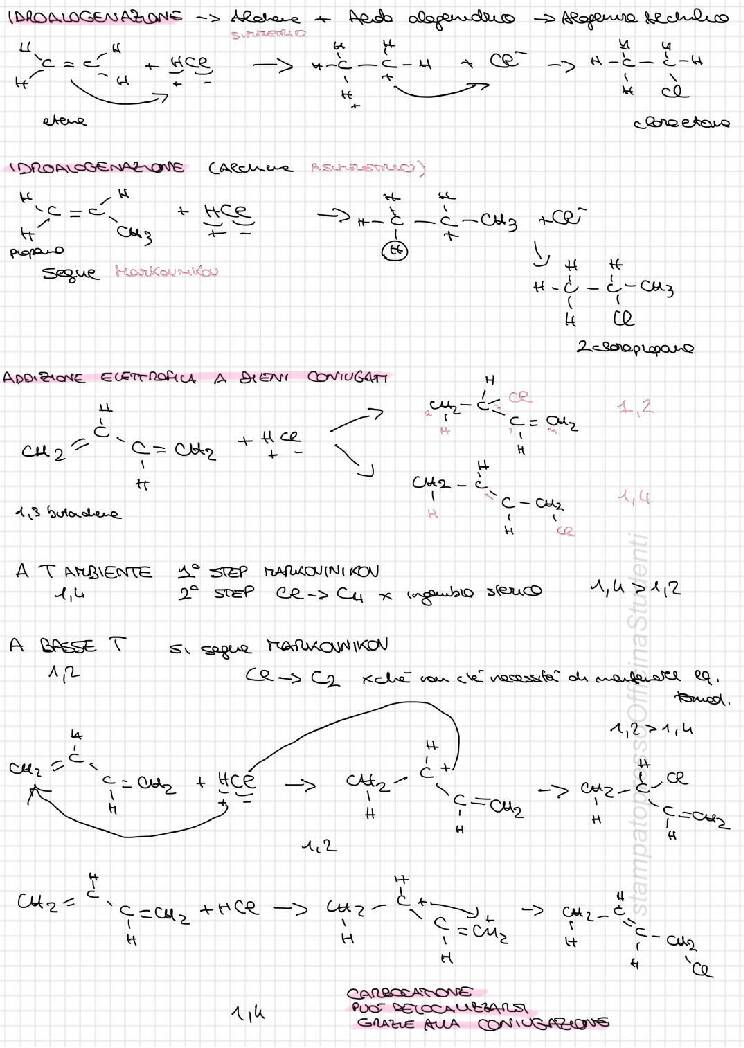 IDROALOGENAZIONE -> Alchene + Acido alogenidrico -> Alogenuro alchilico
SIMMETRICO
H H
C = C + HCl -> H-C-C-H + Cl⁻ -> H-C-C-H
H H + - H + H Cl
etene cloroetano
IDROALOGENAZIONE (Alchene ASIMMETRICO)
H H
C = C + HCl -> H-C-C-CH3 + Cl⁻
H CH3 + - H +
propano
segue MARKOVNIKOV
H H
H-C-C-CH3
H Cl
2-cloropropano
ADDIZIONE ELETTROFILA A DIENI CONIUGATI
H
CH2 = C
C = CH2 + HCl
H + -
1,3 butadiene
H
CH2 - C Cl 1,2
H C = CH2
H
CH2 - C 1,4
H C - CH2
H Cl
A T AMBIENTE 1° STEP MARKOVNIKOV
1,4 2° STEP Cl -> C4 x ingombro sterico 1,4 > 1,2
A BASSE T si segue MARKOVNIKOV
1,2 Cl -> C2 xché non c'è necessità di mantenere eq.
termod.
1,2 > 1,4
H H H
CH2 = C CH2 - C + CH2 - C Cl
C = CH2 + HCl -> H C = CH2 -> H C = CH2
H + - H H
1,2
H H H
CH2 = C CH2 - C + CH2 - C
C = CH2 + HCl -> H C = CH2 + -> H C - CH2
H H H Cl
CARBOCATIONE
1,4 PUO' DELOCALIZZARSI
GRAZIE ALLA CONIUGAZIONE
stampato presso OfficinaStudenti